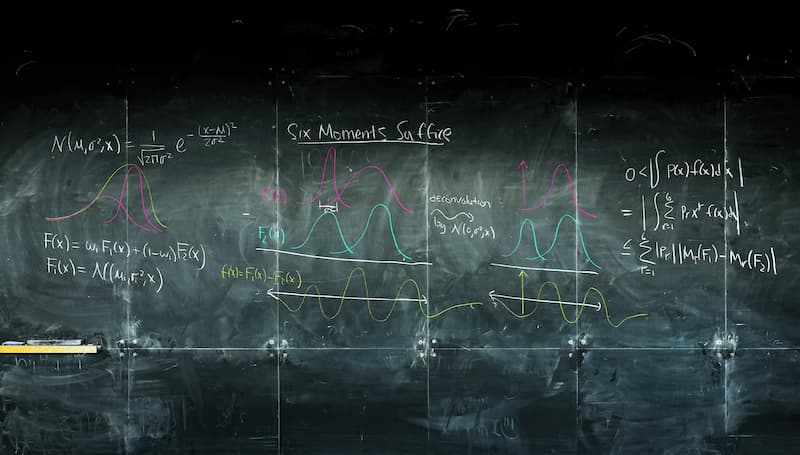 N(μ,σ²,x) = 1/√2πσ² e^-(x-μ)²/2σ²
F(x) = w₁F₁(x)+(1-w₁)F₂(x)
F₁(x) = N(μ₁,σ₁²,x)
Six Moments Suffice
F₂(x)
f(x)=F₁(x)-F₂(x)
deconvolution
by N(0,σ²,x)
0<|∫ p(x)f(x)dx|
= |∫ Σ_{r=1}^6 p_r x^r f(x)dx|
≤ Σ_{r=1}^6 |p_r||M_r(F₁)-M_r(F₂)|